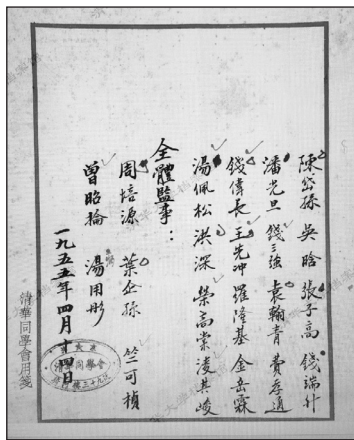 陳岱孫 吳晗 張子高 錢端升
潘光旦 錢三強 袁翰青 費孝通
錢偉長 王先冲 羅隆基 金岳霖
湯佩松 洪深 榮高棠 凌其峻
全體監事：
周培源 葉企孫 竺可楨
曾昭掄 湯用彤
一九五五年四月十四日
清華同學會
清華同學會用箋